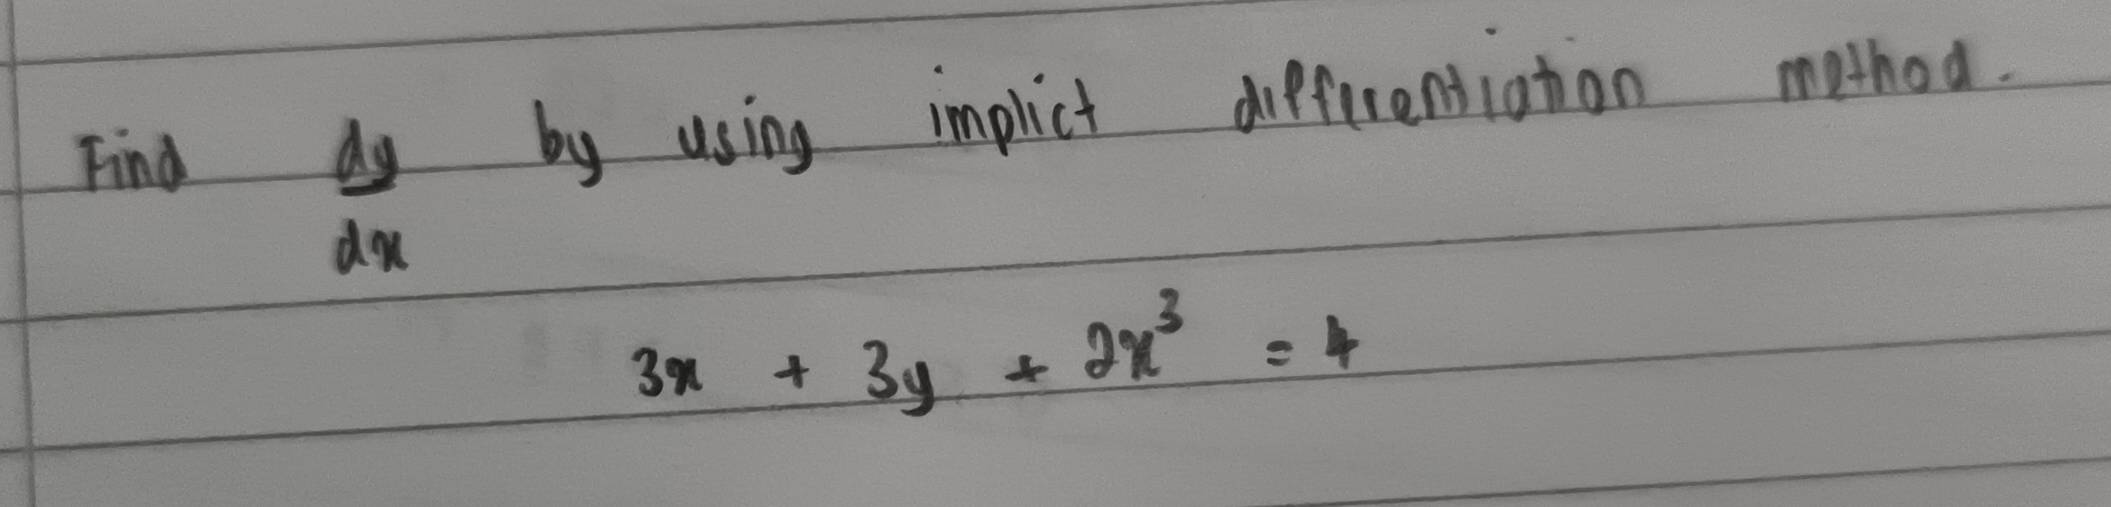 Find dy/dx by using implict differentiation method.
3x + 3y + 2x³ = 4